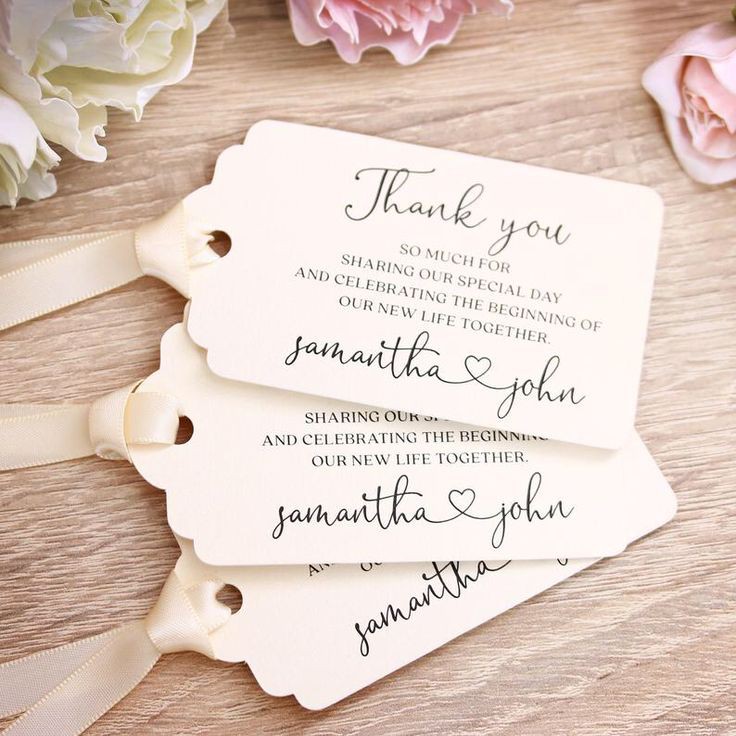 Thank you
SO MUCH FOR
SHARING OUR SPECIAL DAY
AND CELEBRATING THE BEGINNING OF
OUR NEW LIFE TOGETHER.
samantha♡john
SHARING OUR
AND CELEBRATING THE
OUR NEW LIFE TOGETHER.
samantha♡john
samantha